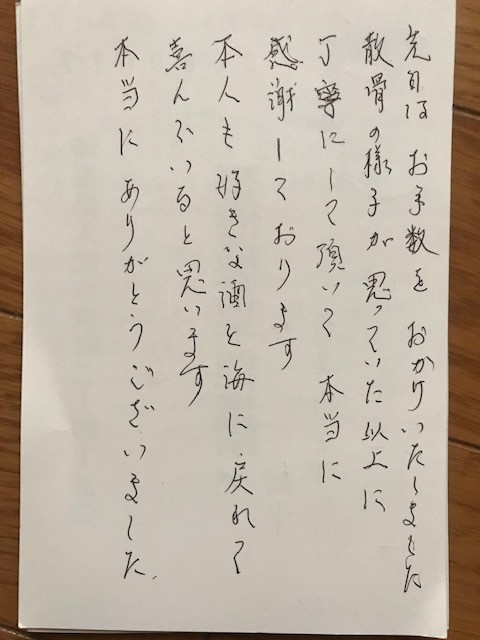 先日は お手数を おかけいたしました
散骨の様子が 思っていた以上に
丁寧にして頂いて 本当に
感謝しております
本人も 好きな酒と海に戻れて
喜んでいると思います
本当に ありがとうございました.